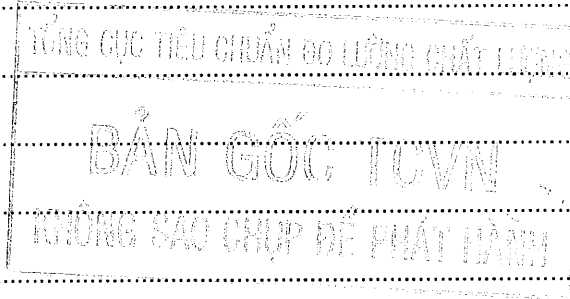 TỔNG CỤC TIÊU CHUẨN ĐO LƯỜNG CHẤT LƯỢNG
BẢN GỐC TCVN
KHÔNG SAO CHỤP ĐỂ PHÁT HÀNH